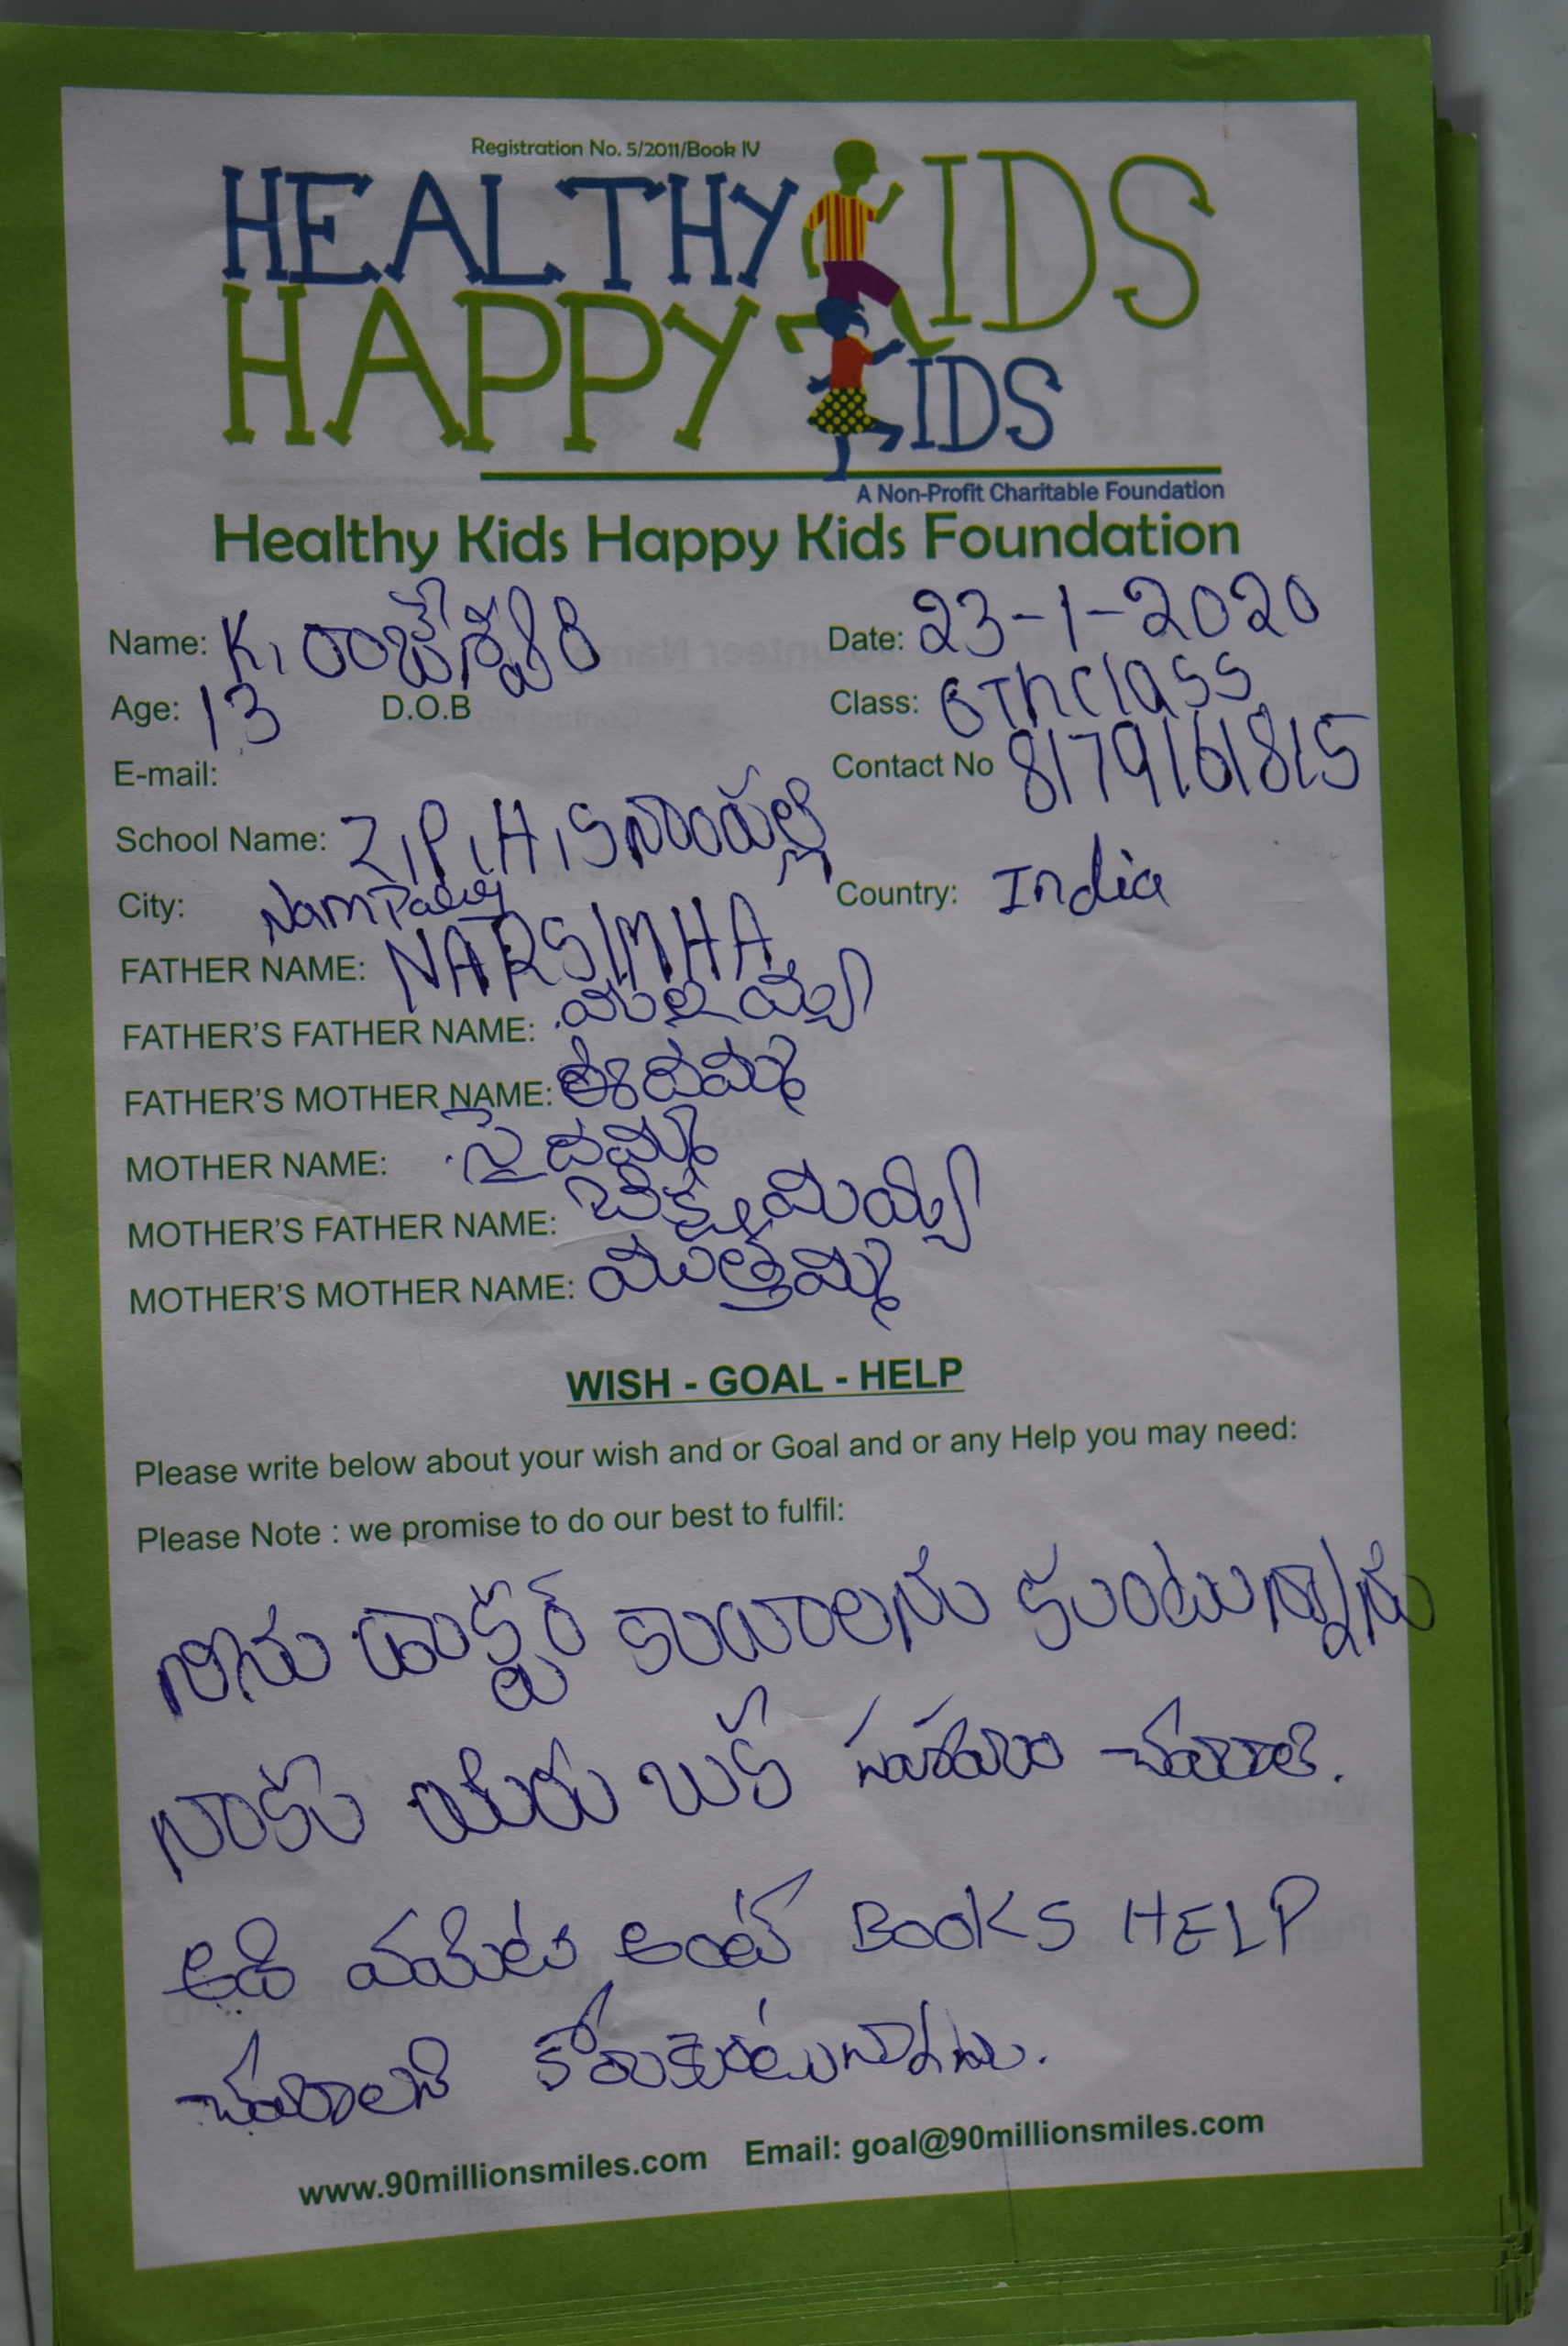 Registration No. 5/2011/Book IV
HEALTHY KIDS
HAPPY KIDS
A Non-Profit Charitable Foundation
Healthy Kids Happy Kids Foundation
Name: K. Date: 23-1-2020
Age: 13 D.O.B Class: 6Th class
E-mail: Contact No 8179161815
School Name: Z.P.H.S నాంపల్లి
City: Nampally Country: India
FATHER NAME: NARSIMHA
FATHER'S FATHER NAME: మలయ్య
FATHER'S MOTHER NAME: ఈదమ్మ
MOTHER NAME: సైదమ్మ
MOTHER'S FATHER NAME: బిక్షమయ్య
MOTHER'S MOTHER NAME: ముత్తమ్మ
WISH - GOAL - HELP
Please write below about your wish and or Goal and or any Help you may need:
Please Note : we promise to do our best to fulfil:
నేను డాక్టర్ కావాలను కుంటున్నాను
నాకు మీరు బుక్ సహయం చేయాలి.
అది ఏమిటి అంటే BOOKS HELP
చేయాలని కోరుకుంటున్నాను.
www.90millionsmiles.com Email: goal@90millionsmiles.com